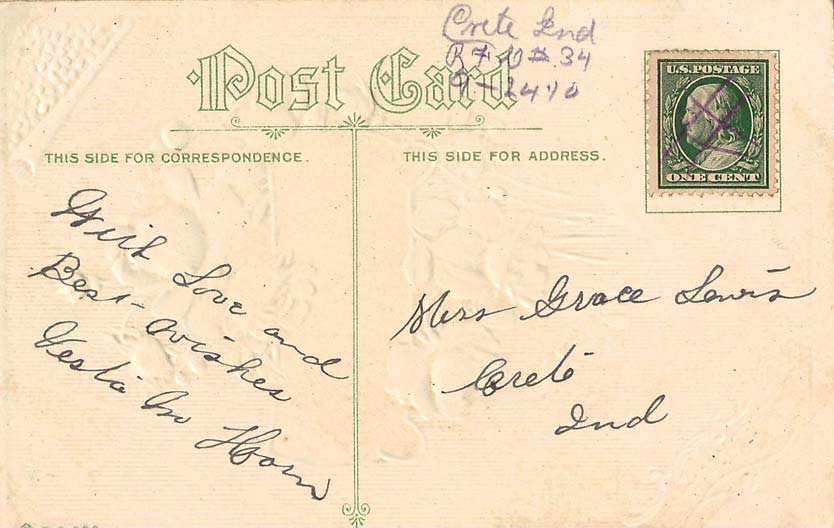 Crete Ind
Post Card
U.S. POSTAGE
ONE CENT
THIS SIDE FOR CORRESPONDENCE.
THIS SIDE FOR ADDRESS.
With Love and
Best-wishes
Horn
Miss Grace Lewis
Crete
Ind